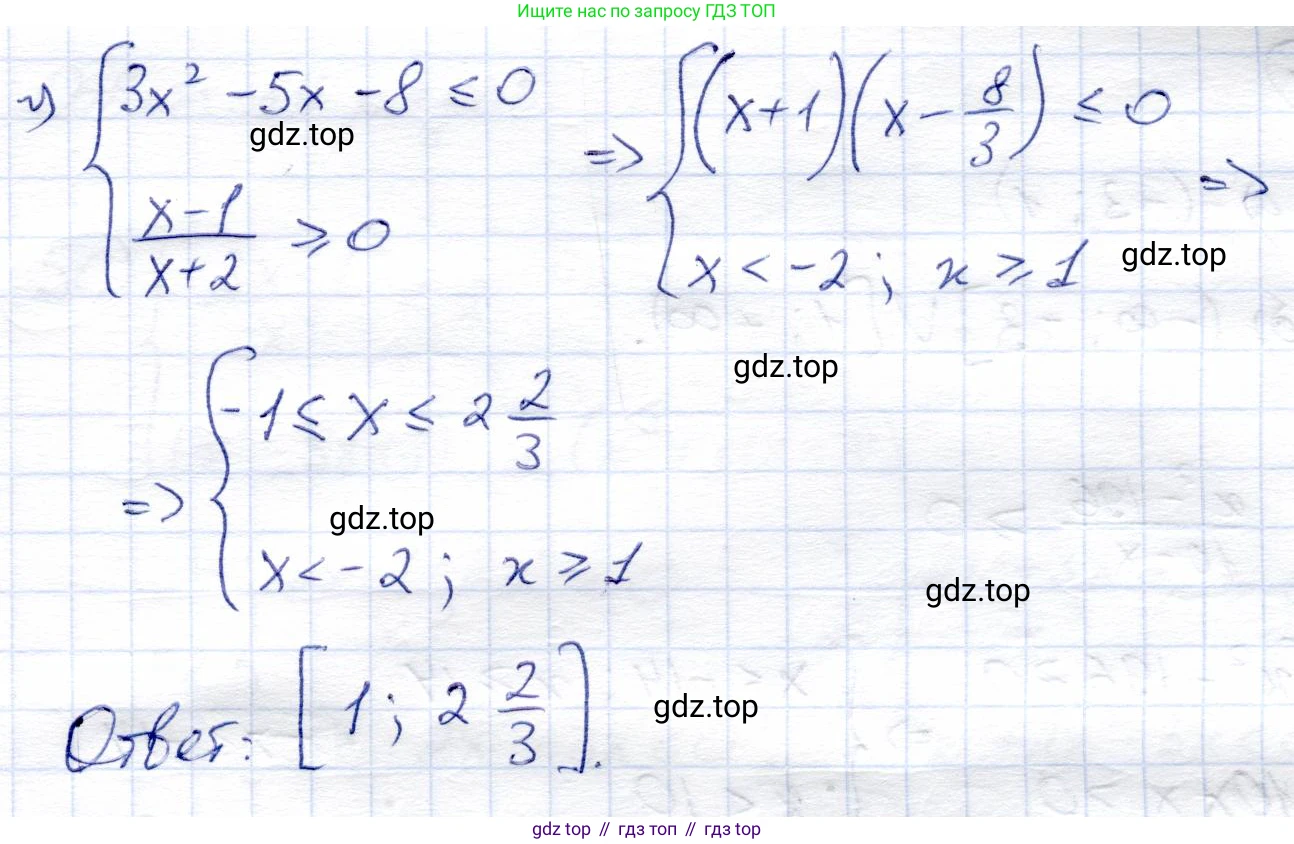 Ищите нас по запросу ГДЗ ТОП
г) { 3x² - 5x - 8 ≤ 0
gdz.top
(x-1)/(x+2) ≥ 0
=> { (x+1)(x - 8/3) ≤ 0 =>
x < -2; x ≥ 1
gdz.top
gdz.top
=> { -1 ≤ x ≤ 2 2/3
gdz.top
x < -2; x ≥ 1
gdz.top
Ответ: [1; 2 2/3].
gdz.top
gdz top // гдз топ // гдз top